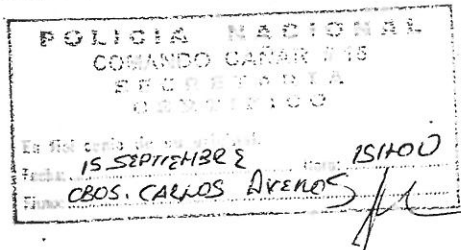 POLICIA NACIONAL
COMANDO CAÑAR # 15
SECRETARIA
CERTIFICO
Es fiel copia de su original
Fecha: 15 SEPTIEMBRE Hora: 15H00
CBOS. CARLOS